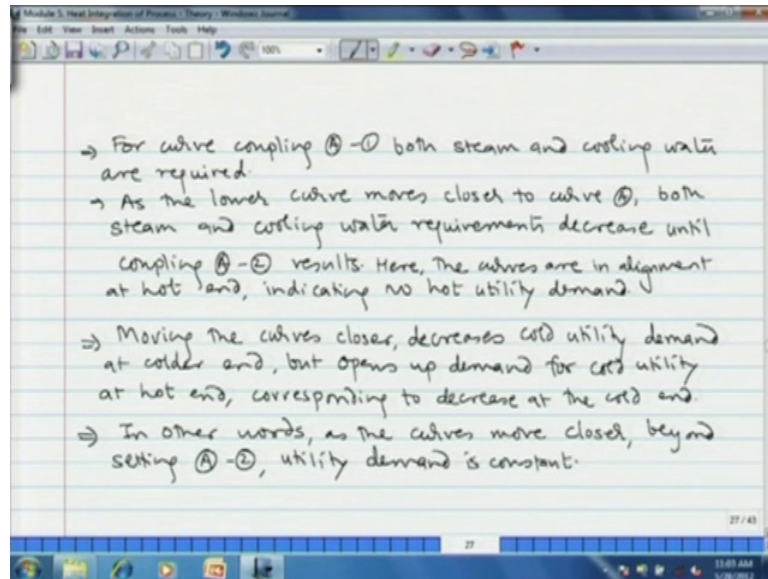 Module 5. Heat Integration of Process - Theory - Windows Journal
File Edit View Insert Actions Tools Help
100%
⇒ For curve coupling Ⓐ-① both steam and cooling water
are required.
→ As the lower curve moves closer to curve Ⓐ, both
steam and cooling water requirements decrease until
coupling Ⓐ-② results. Here, the curves are in alignment
at hot end, indicating no hot utility demand.
⇒ Moving the curves closer, decreases cold utility demand
at colder end, but opens up demand for cold utility
at hot end, corresponding to decrease at the cold end.
⇒ In other words, as the curves move closer, beyond
setting Ⓐ-②, utility demand is constant.
27/43
27
11:03 AM
5/28/2012